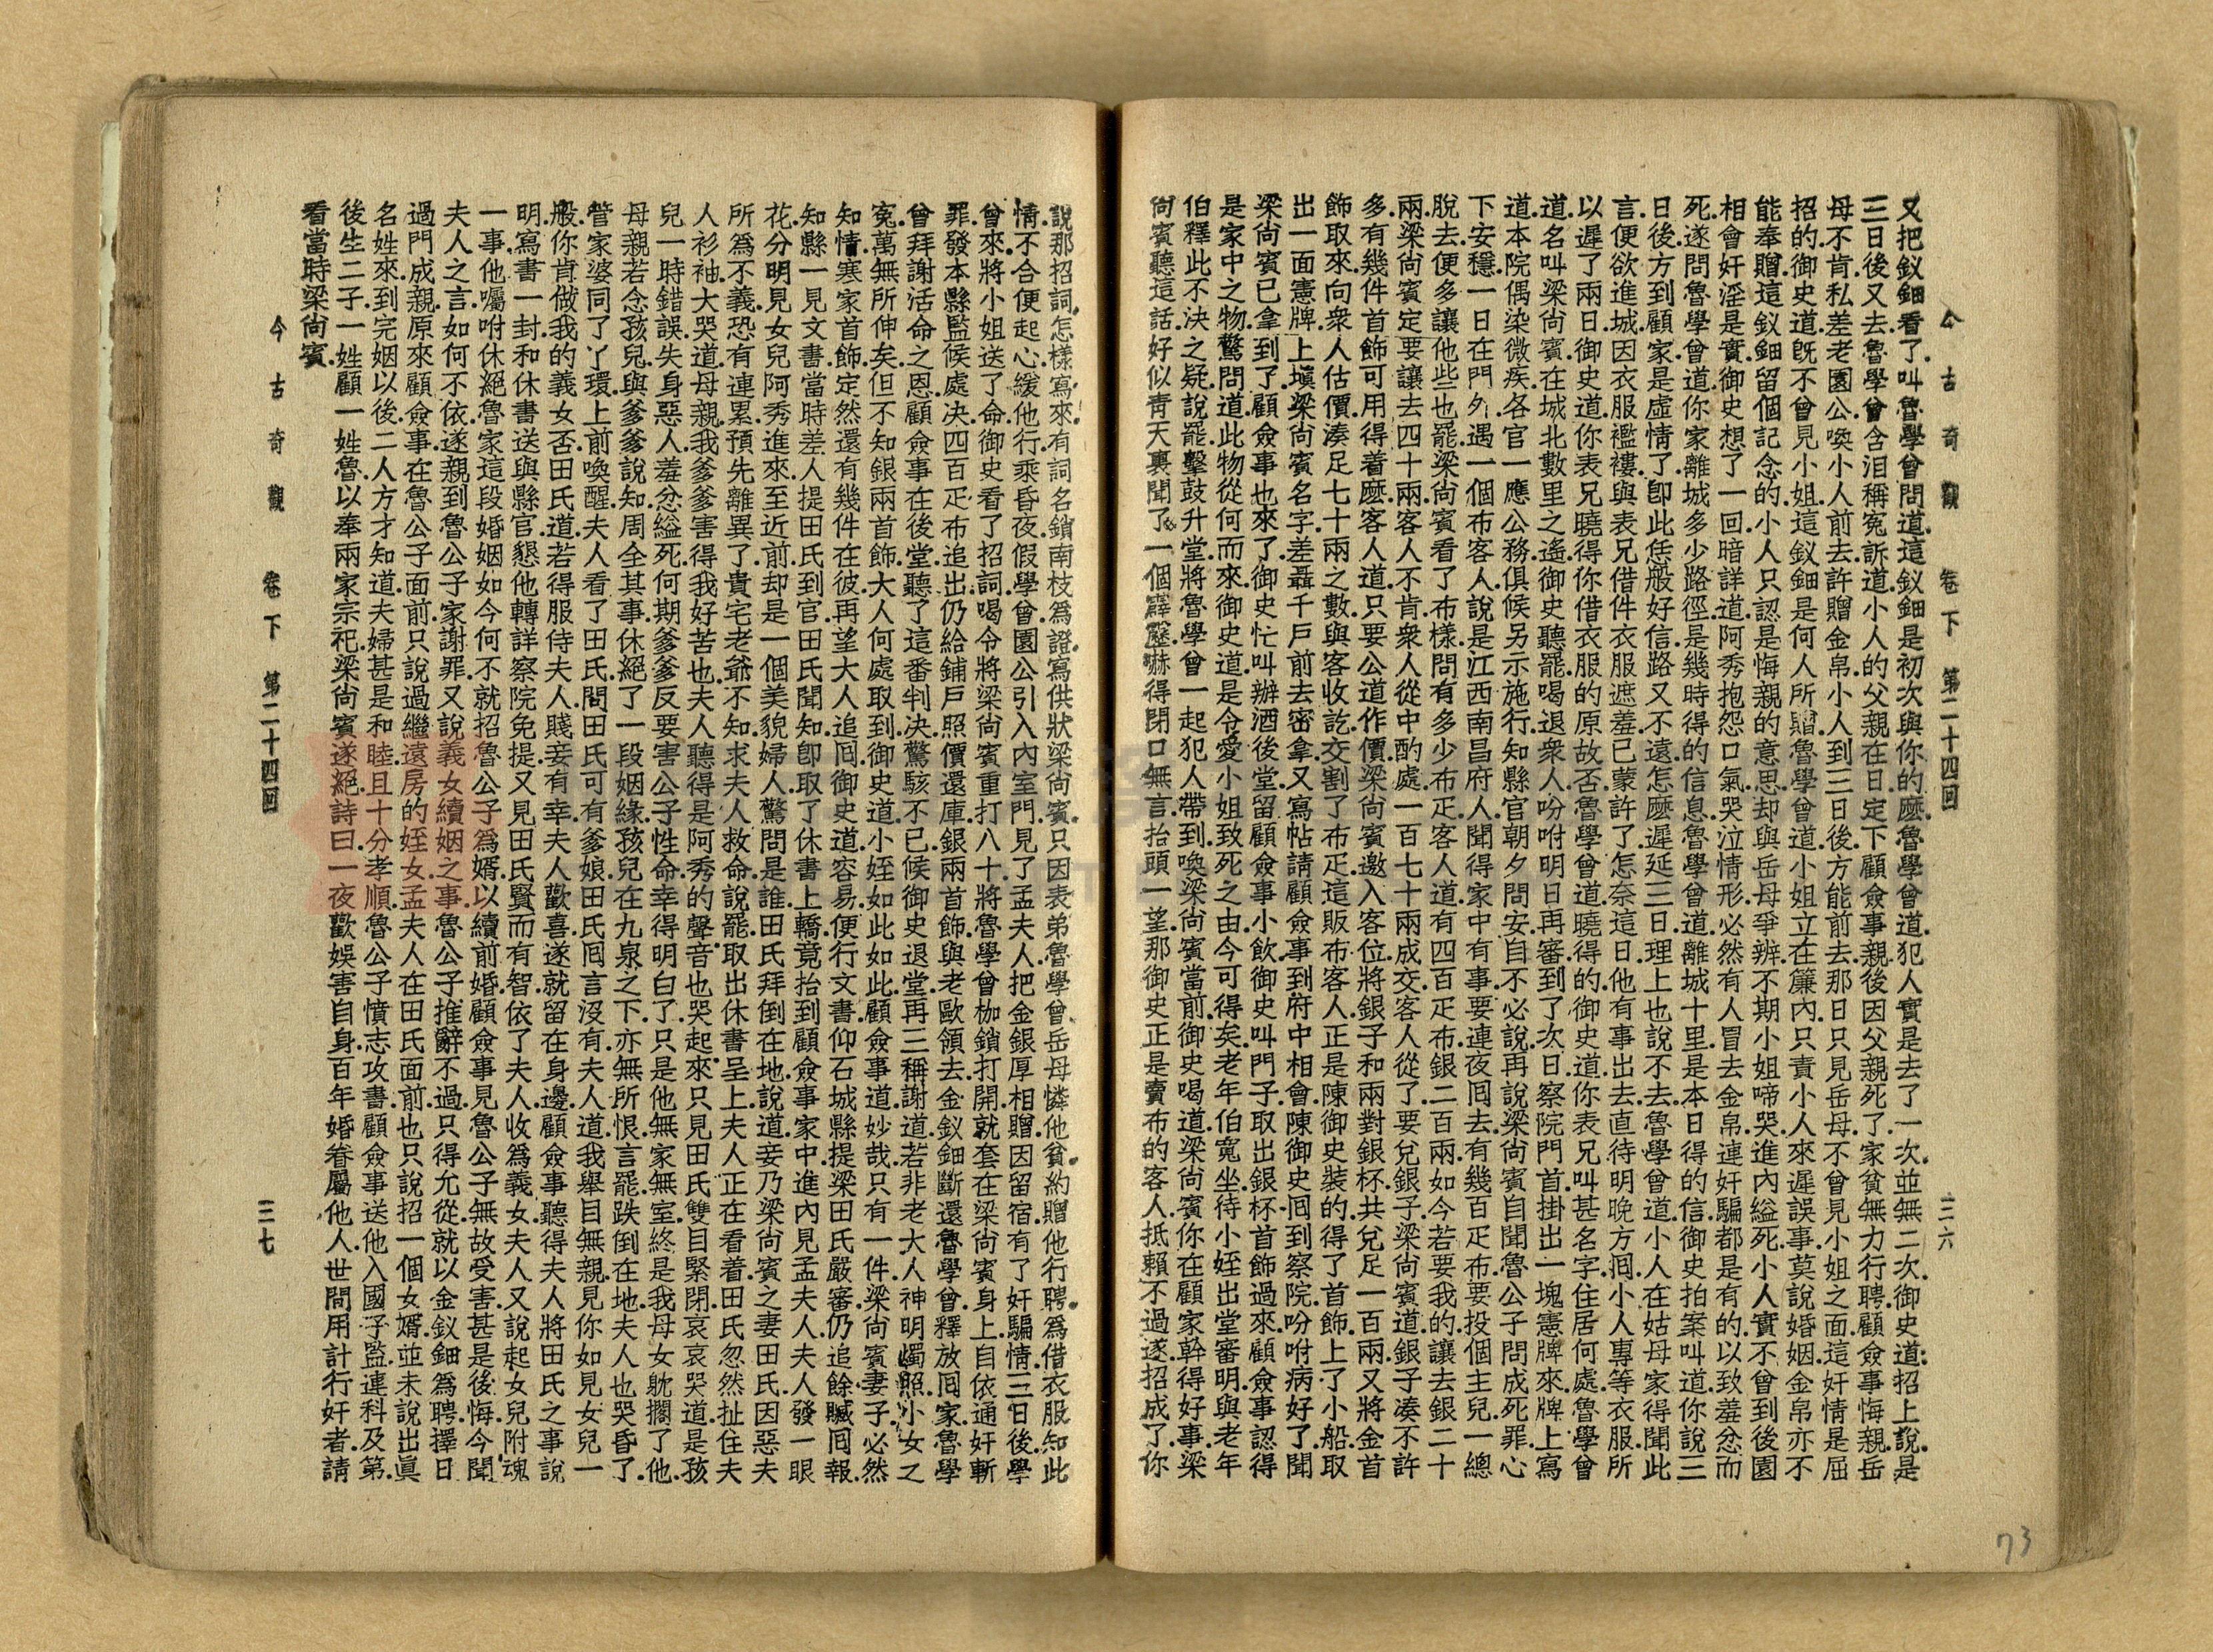 今古奇觀 卷下 第二十四回 三六
又把釵鈿看了.叫魯學曾問道.這釵鈿是初次與你的麽.魯學曾道.犯人實是去了一次.並無二次.御史道.招上說.是
三日後又去.魯學曾含泪稱寃訴道.小人的父親在日.定下顧僉事親.後因父親死了.家貧無力行聘.顧僉事悔親.岳
母不肯.私差老園公喚小人前去.許贈金帛.小人到三日後.方能前去.那日只見岳母.不曾見小姐之面.這奸情是屈
招的.御史道.旣不曾見小姐.這釵鈿是何人所贈.魯學曾道.小姐立在簾內.只責小人來遲誤事.莫說婚姻.金帛亦不
能奉贈.這釵鈿留個記念的.小人只認是悔親的意思.却與岳母爭辨.不期小姐啼哭.進內縊死.小人實不曾到後園
相會.奸淫是實.御史想了一回.暗詳道.阿秀抱怨口氣.哭泣情形.必然有人冒去金帛.連奸騙都是有的.以致羞忿而
死.遂問魯學曾道.你家離城多少路徑.是幾時得的信息.魯學曾道.離城十里.是本日得的信.御史拍案叫道.你說三
日後方到顧家.是虛情了.卽此恁般好信.路又不遠.怎麽遲延三日.理上也說不去.魯學曾道.小人在姑母家得聞此
言.便欲進城.因衣服襤褸.與表兄借件衣服遮羞.已蒙許了.怎奈這日他有事出去.直待明晚方囘.小人專等衣服.所
以遲了兩日.御史道.你表兄曉得你借衣服的原故否.魯學曾道.曉得的.御史道.你表兄叫甚名字.住居何處.魯學曾
道.名叫梁尙賓.在城北數里之遙.御史聽罷.喝退衆人.吩咐明日再審.到了次日.察院門首.掛出一塊憲牌來.牌上寫
道.本院偶染微疾.各官一應公務.俱候另示施行.知縣官朝夕問安.自不必說.再說梁尙賓.自聞魯公子問成死罪.心
下安穩.一日在門外.遇一個布客人.說是江西南昌府人.聞得家中有事.要連夜囘去.有幾百疋布.要投個主兒.一總
脫去.便多讓他些也罷.梁尙賓看了布樣.問有多少布疋.客人道.有四百疋布.銀二百兩.如今若要我的.讓去銀二十
兩.梁尙賓定要讓去四十兩.客人不肯.衆人從中酌處.一百七十兩成交.客人從了.要兌銀子.梁尙賓道.銀子凑不許
多.有幾件首飾可用得着麽.客人道.只要公道作價.梁尙賓邀入客位.將銀子和兩對銀杯.共兌足一百兩.又將金首
飾取來.向衆人估價.湊足七十兩之數.與客收訖.交割了布疋.這販布客人.正是陳御史裝的.得了首飾.上了小船.取
出一面憲牌.上塡梁尙賓名字.差聶千戶前去密拿.又寫帖請顧僉事到府中相會.陳御史囘到察院.吩咐病好了.聞
梁尙賓已拿到了.顧僉事也來了.御史忙叫辦酒後堂.留顧僉事小飲.御史叫門子取出銀杯首飾過來.顧僉事認得
是家中之物.驚問道.此物從何而來.御史道.是令愛小姐致死之由.今可得矣.老年伯寬坐.待小姪出堂審明.與老年
伯釋此不決之疑.說罷.擊鼓升堂.將魯學曾一起犯人帶到.喚梁尙賓當前.御史喝道.梁尙賓.你在顧家幹得好事.梁
尙賓聽這話.好似靑天裏聞了一個霹靂.嚇得閉口無言.抬頭一望.那御史正是賣布的客人.抵賴不過.遂招成了.你
說那招詞怎樣寫來.有詞名鎖南枝爲證.寫供狀.梁尙賓.只因表弟魯學曾.岳母憐他貧.約贈他行聘.爲借衣服知此
情.不合便起心緩他行.乘昏夜.假學曾.園公引入內室門.見了孟夫人.把金銀厚相贈.因留宿.有了奸騙情.三日後學
曾來.將小姐送了命.御史看了招詞.喝令將梁尙賓重打八十.將魯學曾枷鎖打開.就套在梁尙賓身上.自依通奸斬
罪.發本縣監候處决.四百疋布追出.仍給鋪戶照價還庫.銀兩首飾.與老歐領去.金釵鈿斷還魯學曾.釋放囘家.魯學
曾拜謝活命之恩.顧僉事在後堂.聽了這番判决.驚駭不已.候御史退堂.再三稱謝道.若非老大人神明燭照.小女之
寃.萬無所伸矣.但不知銀兩首飾.大人何處取到.御史道.小姪如此如此.顧僉事道.妙哉.只有一件.梁尙賓妻子.必然
知情.寒家首飾.定然還有幾件在彼.再望大人追囘.御史道.容易.便行文書.仰石城縣提梁田氏嚴審.仍追餘贓囘報.
知縣一見文書.當時差人提田氏到官.田氏聞知.卽取了休書.上轎竟抬到顧僉事家中.進內見孟夫人.夫人發一眼
花.分明見女兒阿秀進來.至近前却是一個美貌婦人.驚問是誰.田氏拜倒在地.說道.妾乃梁尙賓之妻田氏.因惡夫
所爲不義.恐有連累.預先離異了.貴宅老爺不知.求夫人救命.說罷.取出休書呈上.夫人正在看着.田氏忽然扯住夫
人衫袖.大哭道.母親.我爹爹害得我好苦也.夫人聽得是阿秀的聲音.也哭起來.只見田氏雙目緊閉.哀哀哭道.是孩
兒一時錯誤.失身惡人.羞忿縊死.何期爹爹反要害公子性命.幸得明白了.只是他無家無室.終是我母女躭擱了他.
母親若念孩兒.與爹爹說知.周全其事.休絕了一段姻緣.孩兒在九泉之下.亦無所恨.言罷.跌倒在地.夫人也哭昏了.
管家婆同了丫環.上前喚醒.夫人看了田氏.問田氏可有爹娘.田氏囘言沒有.夫人道.我舉目無親.見你如見女兒一
般.你肯做我的義女否.田氏道.若得服侍夫人.賤妾有幸.夫人歡喜.遂就留在身邊.顧僉事聽得夫人將田氏之事說
明.寫書一封.和休書送與縣官.懇他轉詳察院免提.又見田氏賢而有智.依了夫人.收爲義女.夫人又說起女兒附魂
一事.他囑咐休絕魯家這段婚姻.如今何不就招魯公子爲婿.以續前婚.顧僉事見魯公子無故受害.甚是後悔.今聞
夫人之言.如何不依.遂親到魯公子家謝罪.又說義女續姻之事.魯公子推辭不過.只得允從.就以金釵鈿爲聘.擇日
過門成親.原來顧僉事在魯公子面前.只說過繼遠房的姪女.孟夫人在田氏面前.也只說招一個女婿.並未說出眞
名姓來.到完姻以後.二人方才知道.夫婦甚是和睦.且十分孝順.魯公子憤志攻書.顧僉事送他入國子監.連科及第.
後生二子.一姓顧.一姓魯.以奉兩家宗祀.梁尙賓遂絕.詩曰.一夜歡娛害自身.百年婚眷屬他人.世間用計行奸者.請
看當時梁尙賓.
今古奇觀 卷下 第二十四回 三七
73